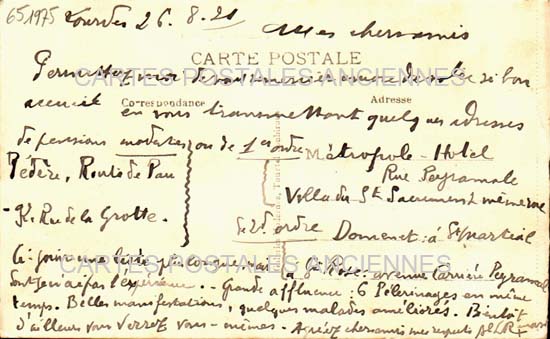 651975
Lourdes 26.8.21
Mes chers amis
CARTE POSTALE
Permettez moi de vous remercier encore de votre si bon
CARTES POSTALES ANCIENNES
accueil
Correspondance
Adresse
en vous transmettant quelques adresses
de pensions modestes ou de 1er ordre
Métropole - Hotel
Rue Peyramale
Pédère, Route de Pau
Villa du St Sacrement même rue
Rue de la Grotte.
de 2e ordre
Domenet : à St Martial
Ci-joint une liste plus longue
CARTES POSTALES ANCIENNES
avenue Carrière Peyramale
dont je n'ai pas l'expérience. - Grande affluence : 6 Pèlerinages en même
temps. Belles manifestations, quelques malades améliorés. Bientôt
d'ailleurs vous verrez vous-mêmes. Agréez chers amis mes respects